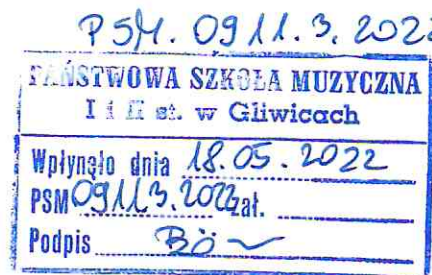 PSM. 0911.3.2022
PAŃSTWOWA SZKOŁA MUZYCZNA
I i II st. w Gliwicach
Wpłynęło dnia 18.05.2022
PSM 0911.3.2022 zał.
Podpis